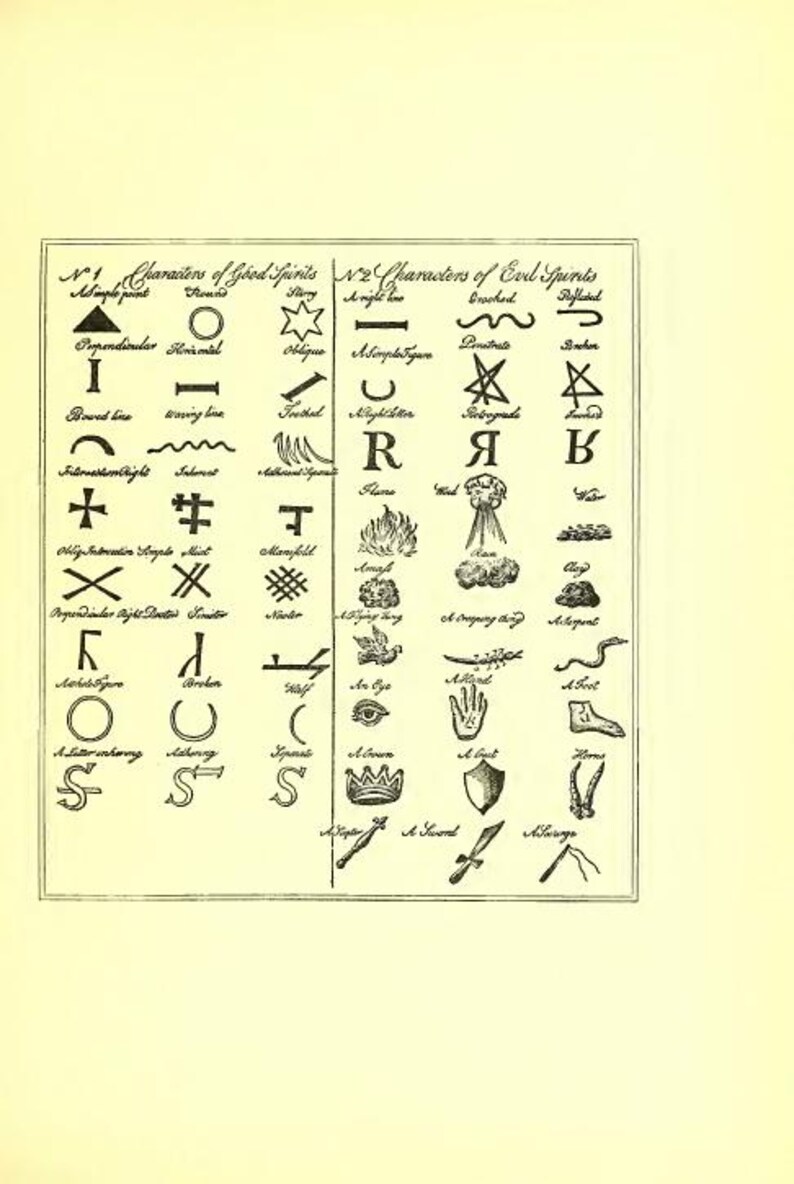 No 1 Characters of Good Spirits
A Simple point Round Starry
Perpendicular Horizontal Oblique
Bowed line Waving line Toothed
Intersection Right Inherent Adherent Separate
Obliq Intersection Simple Mixt Manifold
Perpendicular Right Dexter Sinister Neuter
A whole Figure Broken Half
A Letter inhering Adhering Separate
S S S
No 2 Characters of Evil Spirits
A right line Crooked Reflexed
A Simple Figure Penetrate Broken
A Right Letter Retrograde
R R R
Flame Wind Water
A mass Rain Clay
A Flying thing A Creeping thing A Serpent
An Eye A Hand A Foot
A Crown A Crest Horns
A Scepter A Sword A Scourge